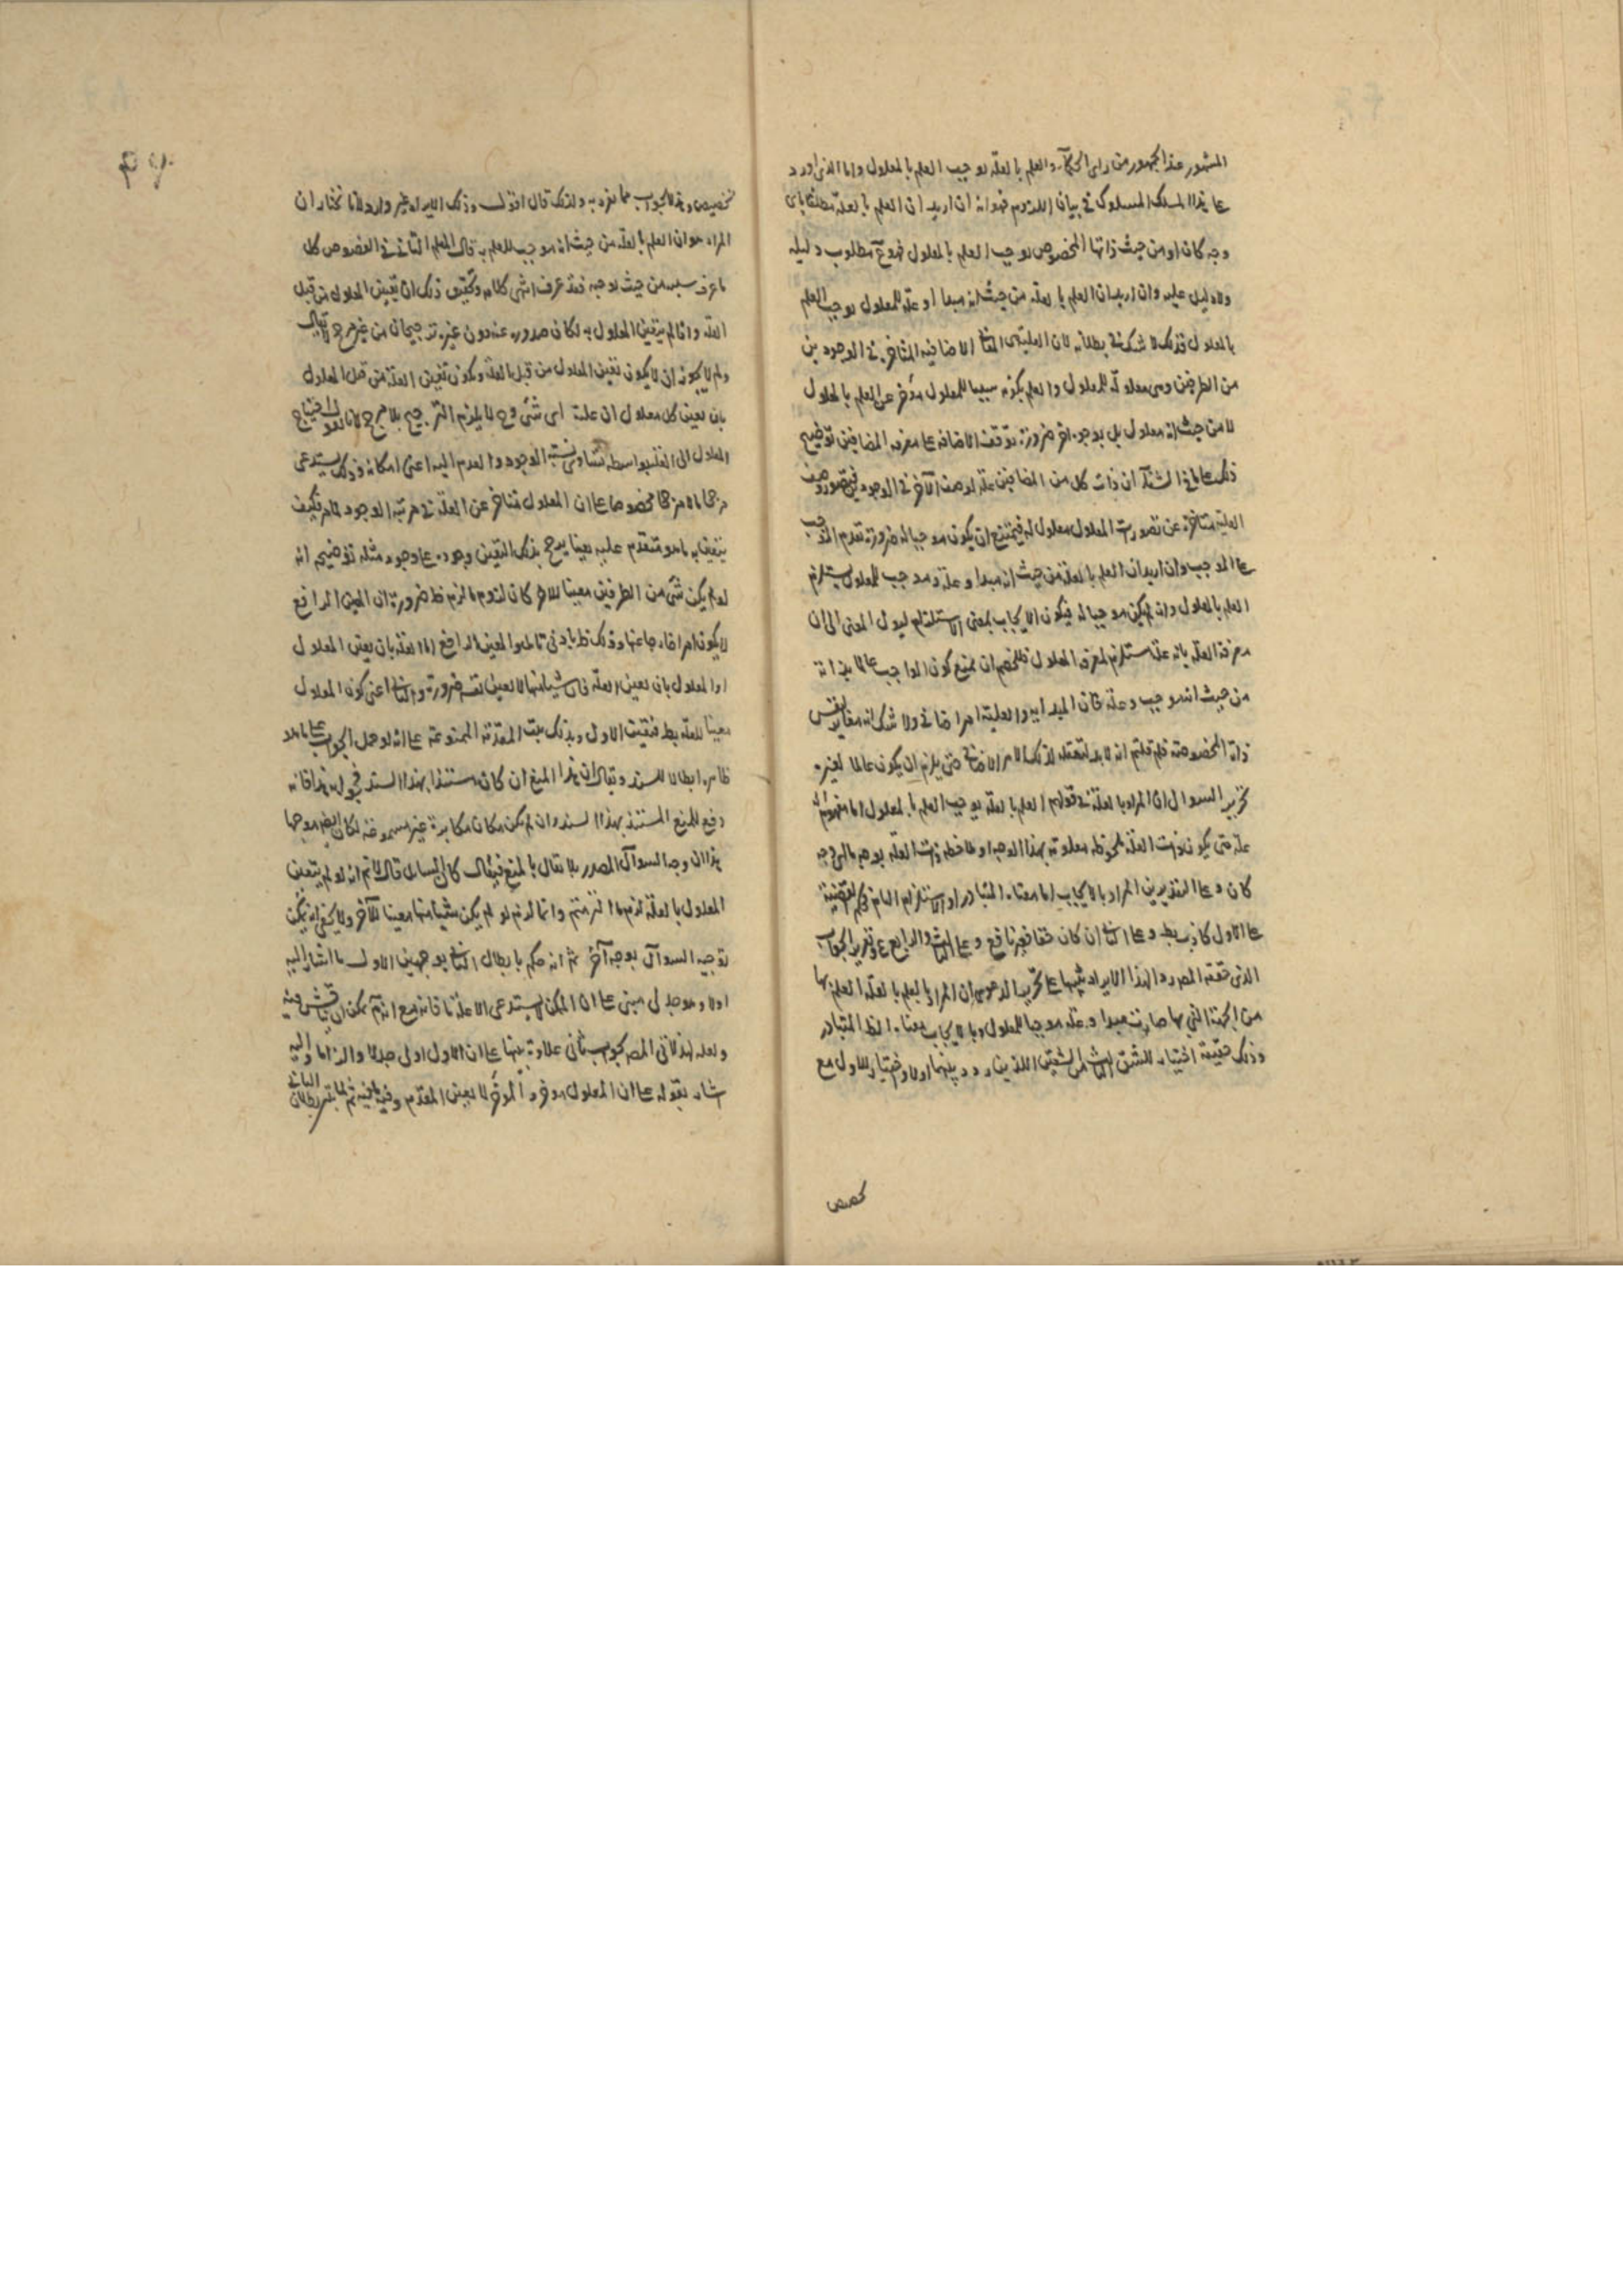 المشهور عند الجمهور من راى الحكماء والعلم بالعلة يوجب العلم بالمعلول واما الذى اورد
على هذا المسلك المسلوك فى بيان اللزوم فهو انه ان اريد ان العلم بالعلة مطلقا باى
وجه كان او من حيث ذاتها المخصوص يوجب العلم بالمعلول فهو مم مطلوب دليله
ولا دليل عليه وان اريد ان العلم بالعلة من حيث انه مبدا او علة للمعلول يوجب العلم
بالمعلول فذلك لا شك فى بطلانه لان العلية من الاضافية المتاخرة فى الوجود من
من الطرفين وهى معلولة للمعلول والعلم بكونه سببا للمعلول مؤخر عن العلم بالمعلول
لا من حيث انه معلول بل بوجود اخر ضرورة توقف الاضافة على معرفة المضافين توضيح
ذلك على ما فى الشفآ ان ذات كل من المضافين علة لوصف الآخر فى الوجود فتصور وصف
العلية متاخرة عن تصور ذات المعلول معلول له فيمتنع ان يكون موجبا له ضرورة تقدم الموجب
على الموجب وان اريد ان العلم بالعلة من حيث انه مبدا وعلة وموجب للمعلول يستلزم
العلم بالمعلول وان لم يكن موجبا له فيكون الايجاب بمعنى الاستلزام ليول المعنى الى ان
معرفة العلة بانه علة مستلزم لمعرفة المعلول فللخصم ان يمنع كون الواجب عالما بذاته
من حيث انه موجب وعلة فان المبدايه والعلية امر اضافى ولا شك انه مغاير لنفس
ذاته المخصوصة فلم قلتم انه لابد لتعقله لذلك الامر الاضافى حتى يلزم ان يكون عالما لغيره
تحرير السوال ان المراد بالعلة فى قولهم العلم بالعلة يوجب العلم بالمعلول اما مفهوم انه
علة حتى يكون ذات العلة ملحوظة معلومة بهذا الوجه او ملاحظة ذات العلة بوجه ما اى وجه
كان وعلى التقديرين المراد بالايجاب اما معناه المتبادر او الاستلزام العام وحكم القضية
على الاول كاذب بط وعلى الثانى ان كان حقا فغير نافع وعلى الثالث والرابع مم وتقرير الجواب
الذى حققه المصـ رد الهذا الايراد تنبيها على تحرير الدعوى ان المراد بالعلم بالعلة العلم بها
من الجهة التى بها صارت مبدا وعلة موجبا للمعلول وبالايجاب معناه الظ المتبادر
وذلك حقيقة اختيار للشق الثالث من الشقين اللذين ردد بينهما اولا واختيار للاول مع
تخصيص
تخصيص وهذا الجواب مما تفرد به ولذلك قال اقول وذلك الايراد غير وارد لانا نختار ان
المراد هو ان العلم بالعلة من حيث انه موجب للعلم به قال المعلم الثانى فى الفصوص كل
ما عرف سببه من حيث يوجبه فقد عرف انتهى كلامه وتحقيق ذلك ان تعين المعلول من قبل
العلة واذا لم يتعين المعلول به لكان صدوره عنه دون غيره ترجيحا من غير مرجح لا يقال
ولم لا يجوز ان لا يكون تعين المعلول من قبل العلة ويكون تعين العلة من قبل المعلول
بان يعين كل معلول ان علته اى شئ وح لا يلزم الترجيح بلا مرجح لانا نقول احتياج
المعلول الى العلة بواسطة تساوى نسبة الوجود والعدم اليه اعنى امكانه وذلك يستدعى
مرجحا ما لا مرجحا مخصوصا على ان المعلول متاخر عن العلة فى مرتبة الوجود لما مر فكيف
يتعين به ما هو متقدم عليه تعينا يرجح بذلك التعين وجوده على وجود مثله توضيحه انه
لو لم يكن شئ من الطرفين معينا للاخر كان لزوم ما لزم ظ ضرورة ان المعين الرافع
لا يكون امرا خارجا عنها وذلك ظ بادنى تامل والمعين الرافع اما العلة بان يعين المعلول
او المعلول بان يعين العلة فان شيئا منها لا يعين نفسه ضرورة والثانى اعنى كون المعلول
معينا للعلة بط فتعين الاول وبذلك يثبت المقدمة الممنوعة على انه لو حمل الجواب على ما هو
ظاهره ابطالا للسند ويقال ان هذا المنع ان كان مستندا بهذا السند فجوابه هذا فانه
دفع للمنع المستند بهذا السند وان لم يكن مكان مكابرة غير مسموعة لكان ايضا موجها
هذا ان وجه السوال المصدر بلا يقال بالمنع فيقال كان السائل قال لانم انه لو لم يتعين
المعلول بالعلة لزم ما التزمتم وانما لزم لو لم يكن شيئا منها معينا للآخر ولا يخفى انه يمكن
توجيه السوال بوجه آخر ثم انه حكم بابطال الثانى بوجهين الاول ما اشار اليه
اولا وهو جدلى مبنى على ان الممكن لا يستدعى الا علة ما فانه مع انه مم يمكن ان يناقش فيه
ولعله لهذا اتى المصـ بجواب ثانى علاوة تنبيها على ان الاول اولى جدلا والزاما واليه
اشار بقوله على ان المعلول مؤخر والمؤخر لا يعين المقدم